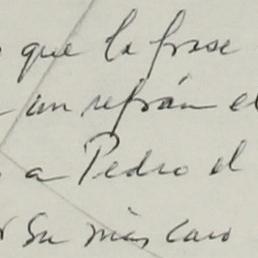 que la frase
un refrán el
a Pedro el
su más caro